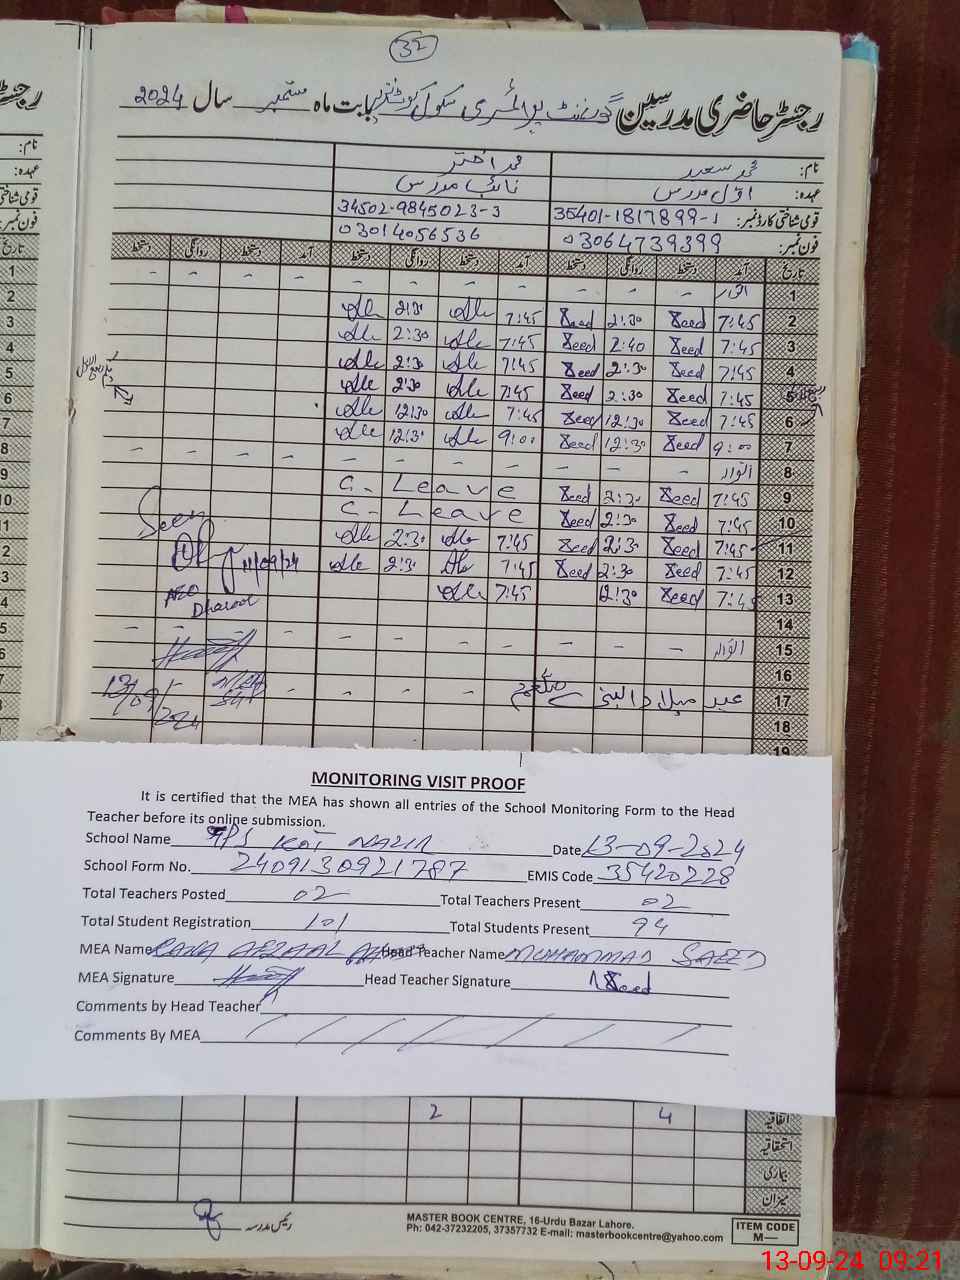 32
رجسٹر حاضری مدرسین گورنمنٹ پرائمری سکول کوٹ نذیر بابت ماہ ستمبر سال 2024
نام: محمد سعید محمد اختر
عہدہ: اوّل مدرس نائب مدرس
قومی شناختی کارڈ نمبر: 35401-1817899-1 34502-9845023-3
فون نمبر: 03064739399 03014056536
تاریخ آمد دستخط روانگی دستخط آمد دستخط روانگی دستخط آمد دستخط روانگی دستخط
1 اتوار - - - - - - - - - -
2 7:45 Saeed 2:30 Saeed 7:45 2:30
3 7:45 Saeed 2:40 Saeed 7:45 2:30
4 7:45 Saeed 2:30 Saeed 7:45 2:30
5 7:45 Saeed 2:30 Saeed 7:45 2:30
6 7:45 Saeed 12:30 Saeed 7:45 12:30
7 9:00 Saeed 12:30 Saeed 9:00 12:30
8 اتوار - - - - - - - - - -
9 7:45 Saeed 2:30 Saeed C. Leave
10 7:45 Saeed 2:30 Saeed C. Leave
11 7:45 Saeed 2:30 Saeed 7:45 2:30
12 7:45 Saeed 2:30 Saeed 7:45 2:30
13 7:45 Saeed 12:30 7:45
14
15 اتوار - - - - - - - - -
16
17 عید میلاد النبی - - - -
18
19
Seen
11/09/24
AEO
13/09/2024
MONITORING VISIT PROOF
It is certified that the MEA has shown all entries of the School Monitoring Form to the Head
Teacher before its online submission.
School Name GPS KOT NAZIR Date 13-09-2024
School Form No. 2409130921787 EMIS Code 35420228
Total Teachers Posted 02 Total Teachers Present 02
Total Student Registration 101 Total Students Present 94
MEA Name RANA AFZAAL Head Teacher Name MUHAMMAD SAEED
MEA Signature Head Teacher Signature Saeed
Comments by Head Teacher
Comments By MEA
اتفاقیہ 4 2
استحقاقیہ
بیماری
میزان
رئیس مدرسہ
MASTER BOOK CENTRE, 16-Urdu Bazar Lahore.
Ph: 042-37232205, 37357732 E-mail: masterbookcentre@yahoo.com
ITEM CODE
M—
13-09-24 09:21